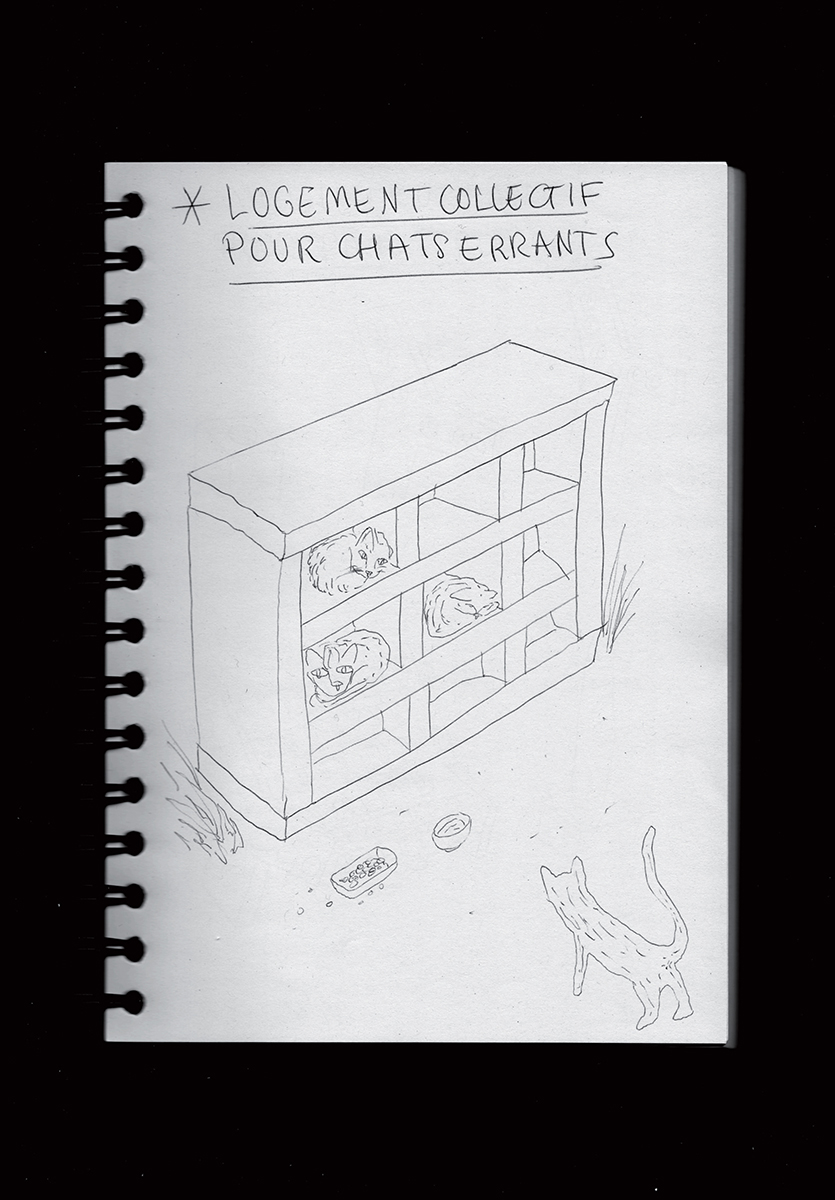 * LOGEMENT COLLECTIF
POUR CHATS ERRANTS